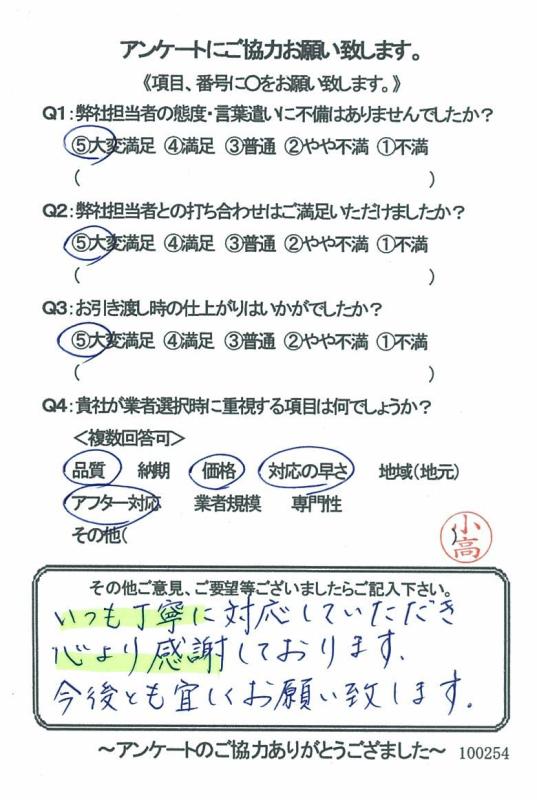 アンケートにご協力お願い致します。
《項目、番号に〇をお願い致します。》
Q1：弊社担当者の態度・言葉遣いに不備はありませんでしたか？
⑤大変満足 ④満足 ③普通 ②やや不満 ①不満
( )
Q2：弊社担当者との打ち合わせはご満足いただけましたか？
⑤大変満足 ④満足 ③普通 ②やや不満 ①不満
( )
Q3：お引き渡し時の仕上がりはいかがでしたか？
⑤大変満足 ④満足 ③普通 ②やや不満 ①不満
( )
Q4：貴社が業者選択時に重視する項目は何でしょうか？
＜複数回答可＞
品質 納期 価格 対応の早さ 地域（地元）
アフター対応 業者規模 専門性
その他(
小高
その他ご意見、ご要望等ございましたらご記入下さい。
いつも丁寧に対応していただき
心より感謝しております。
今後とも宜しくお願い致します。
～アンケートのご協力ありがとうござました～ 100254